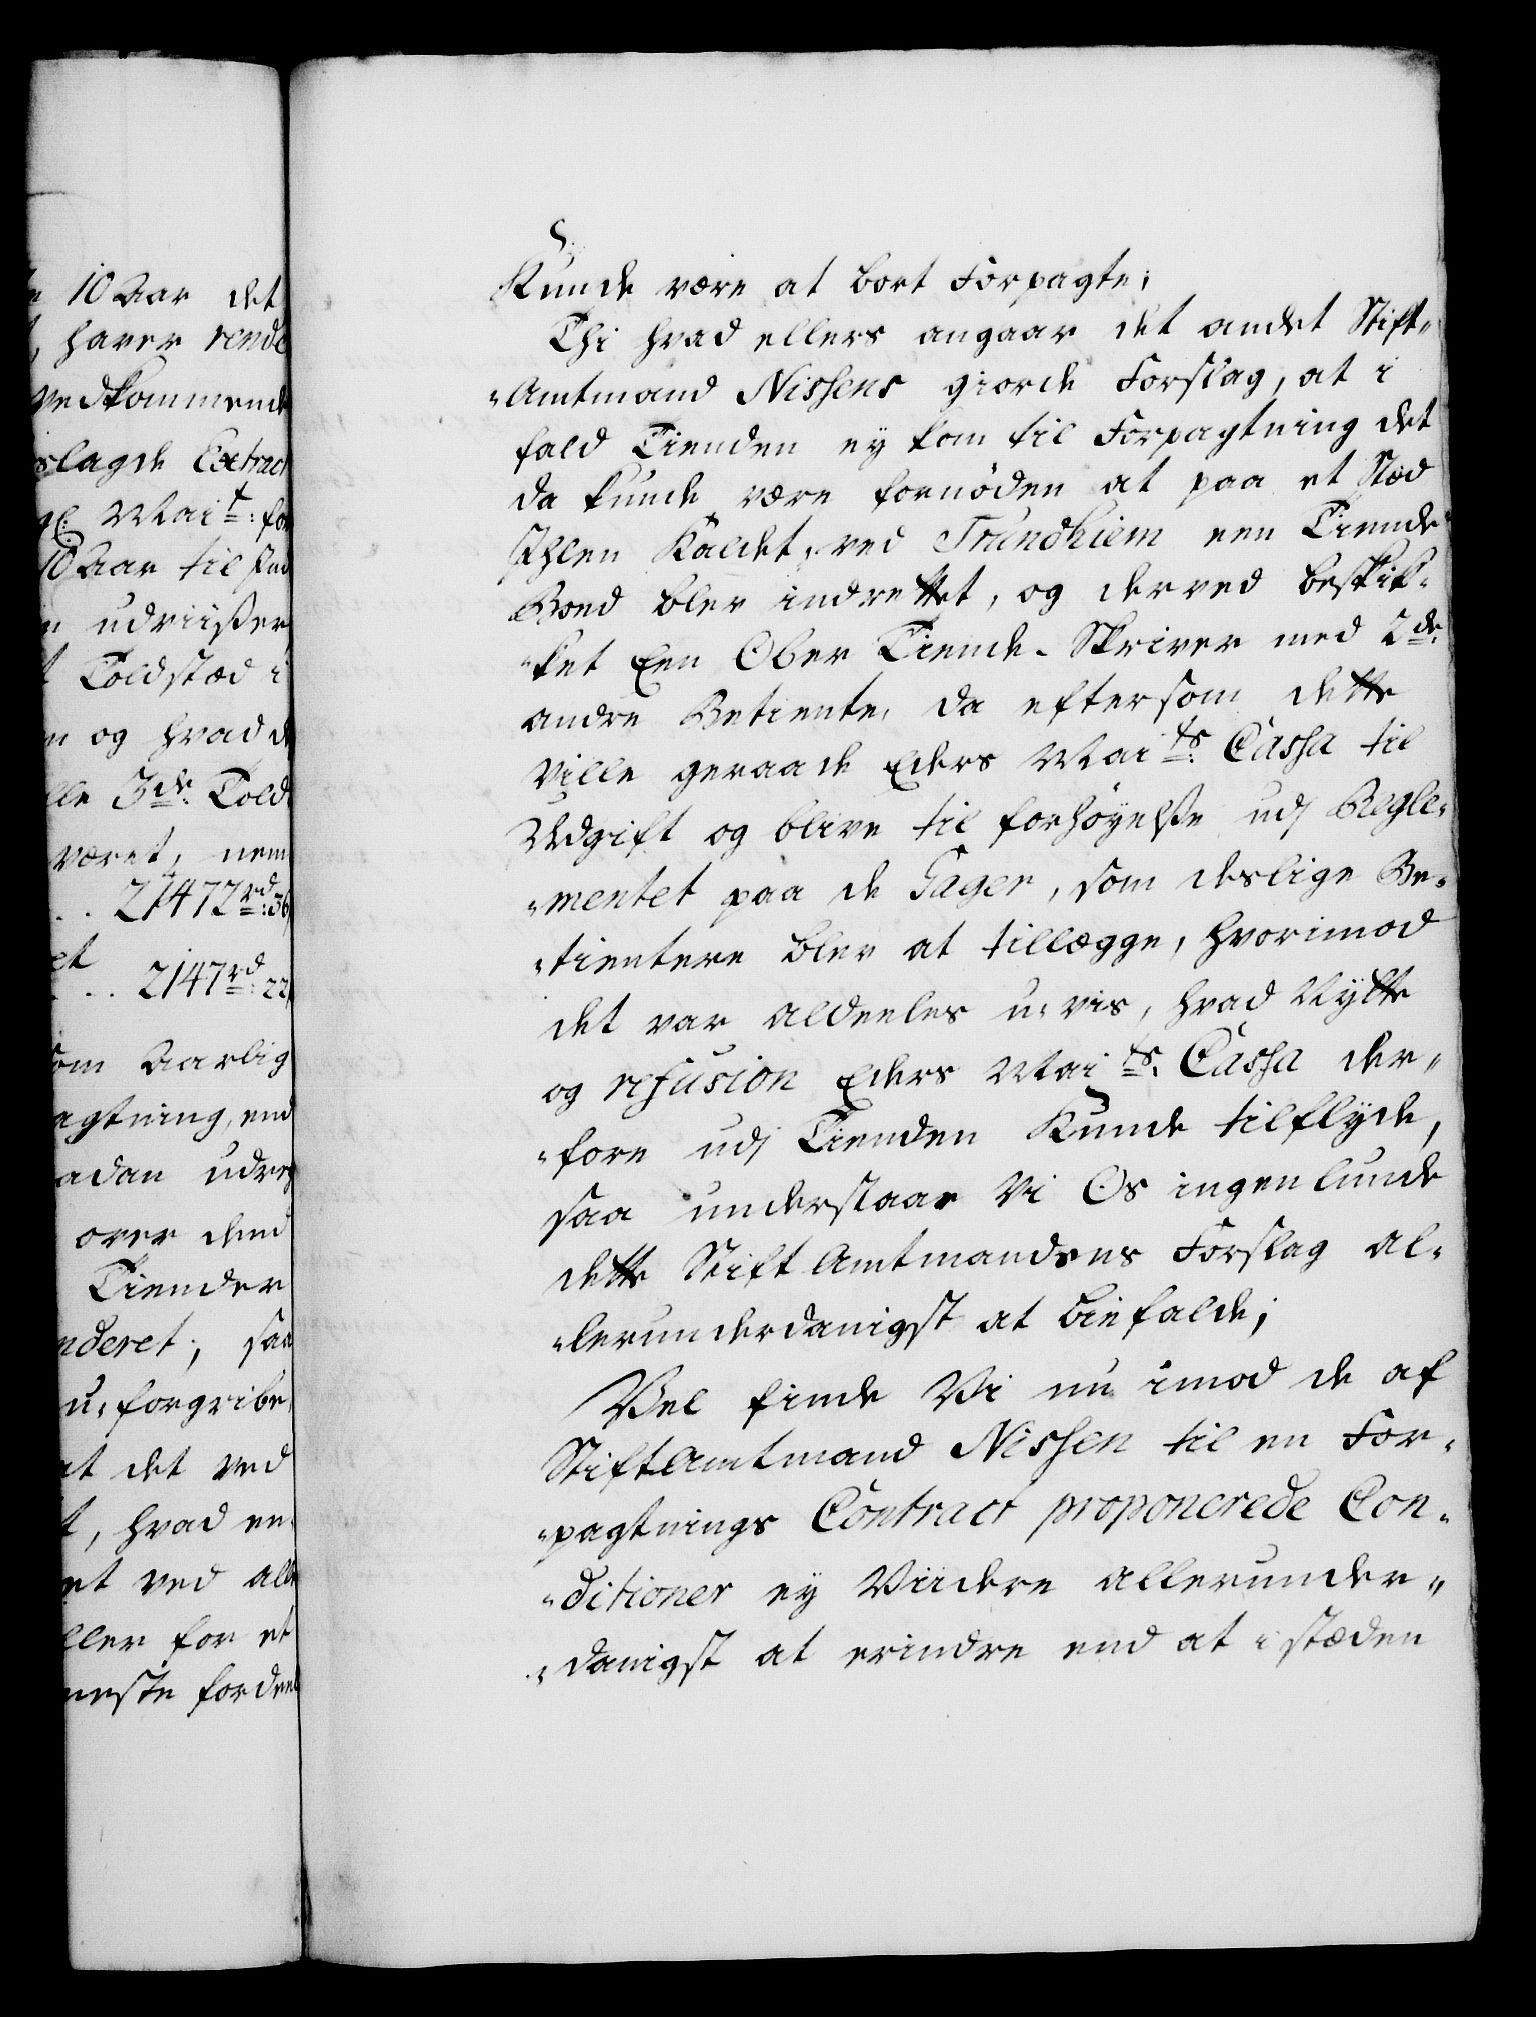 10 Aar det
, haver rende
vedkommende
slagde Extract
gl. Mait: for
10 Aar til
udviiser
Toldstæd i
og hvad d
lle 3de Told
været, nem
.. 21472rd: 36
et
.. 2147rd: 22
som Aarlig
agtning, end
adan udre
over dend
Tiender
nderet; saa
u-forgribe
at det ved
t, hvad en
et ved alle
ller for et
neste fordeel
Kunde være at bort Forpagte;
Thi hvad ellers angaar det andet Stift-
-Amtmand Nissens giorde Forslag, at i
fald Tienden ey kom til Forpagtning det
da kunde være fornøden at paa et Stæd
Ihlen Kaldet, ved Trundhiem een Tiende
Boed blev indrettet, og derved beskik-
-ket Een Ober Tiende-Skriver med 2de
andre Betiente, da eftersom dette
ville geraade Eders Maits Cassa til
Udgift og blive til forhøyelse udj Regle-
-mentet paa de Gager, som deslige Be-
-tientere blev at tillægge, hvorimod
det var aldeeles u-vis, hvad Nytte
og refusion Eders Maits Cassa der-
-fore udj Tienden Kunde tilflyde,
saa understaar Vi Os ingenlunde
dette Stift Amtmandens Forslag al-
-lerunderdanigst at biefalde;
Vel finde Vi nu imod de af
StiftAmtmand Nissen til en For-
-pagtnings Contract proponerede Con-
-ditioner ey Viidere allerunder-
-danigst at erindre end at i stæden